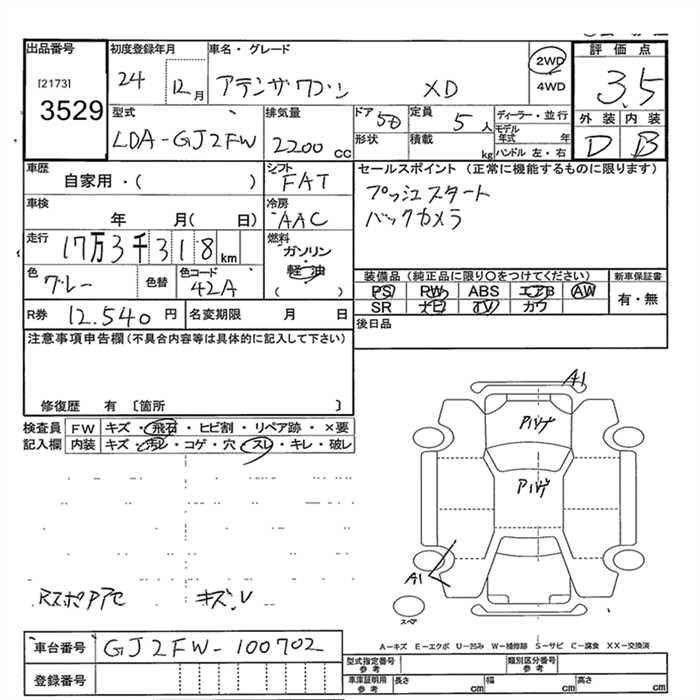 出品番号 初度登録年月 車名・グレード 評価点
[2173] 24 12月 アテンザワゴン XD 2WD 3.5
3529 4WD
型式 排気量 ドア 定員 ディーラー・並行 外装 内装
LDA-GJ2FW 2200cc 5D 5人 モデル年式 年 D B
形状 積載 kg ハンドル 左・右
車歴 シフト セールスポイント(正常に機能するものに限ります)
自家用・( ) FAT プッシュスタート
車検 冷房 バックカメラ
年 月( 日) AAC
走行 17万3千318km 燃料 ガソリン・軽油
( )
色 グレー 色替 色コード 42A
装備品(純正品に限り○をつけてください) 新車保証書
PS PW ABS エアB AW 有・無
SR ナビ TV カワ
R券 12,540円 名変期限 月 日 後日品
注意事項申告欄(不具合内容等は具体的に記入して下さい)
修復歴 有 [箇所 ]
検査員 FW キズ・飛石・ヒビ割・リペア跡・×要
記入欄 内装 キズ・汚レ・コゲ・穴・スレ・キレ・破レ
A1
アハゲ
アハゲ
A1
スペア
RスポアC キズ、U
A-キズ E-エクボ U-凹み W-補修跡 S-サビ C-腐食 XX-交換済
車台番号 GJ2FW-100702
型式指定番号 参考 類別区分番号 参考
登録番号 車庫証明用 参考 長さ cm 幅 cm 高さ cm